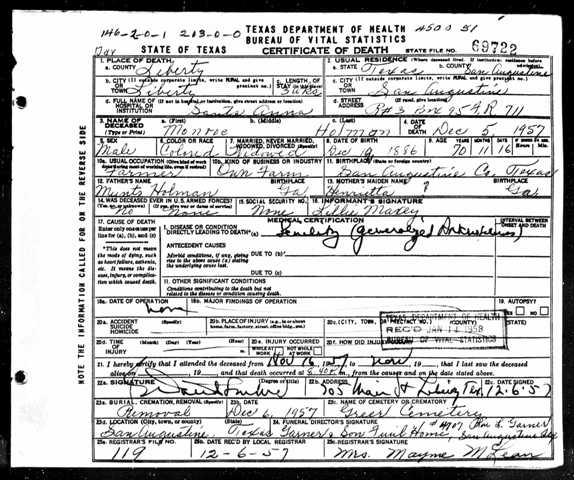 146-20-1 203-0-0 TEXAS DEPARTMENT OF HEALTH 4500 51
BUREAU OF VITAL STATISTICS
STATE OF TEXAS CERTIFICATE OF DEATH STATE FILE NO. 69722
1. PLACE OF DEATH 2. USUAL RESIDENCE (Where deceased lived. If institution: residence before admission)
a. COUNTY Liberty a. STATE Texas b. COUNTY San Augustine
b. CITY (If outside corporate limits, write RURAL and give precinct no.) OR TOWN Liberty c. LENGTH OF STAY 3 wks c. CITY (If outside corporate limits, write RURAL and give precinct no.) OR TOWN San Augustine
d. FULL NAME OF (If not in hospital or institution, give street address or location) HOSPITAL OR INSTITUTION Santa Anna d. STREET ADDRESS Rt #3 Box 95
3. NAME OF DECEASED (Type or Print) a. (First) Monroe b. (Middle) c. (Last) Holman 4. DATE OF DEATH Dec 5, 1957
5. SEX Male 6. COLOR OR RACE Colored 7. MARRIED, NEVER MARRIED, WIDOWED, DIVORCED (Specify) Widowed 8. DATE OF BIRTH 1886 9. AGE 70 11 16
10a. USUAL OCCUPATION Farmer 10b. KIND OF BUSINESS OR INDUSTRY Own Farm 11. BIRTHPLACE (State or foreign country) San Augustine Co, Texas
12. FATHER'S NAME Holman BIRTHPLACE Ga 13. MOTHER'S MAIDEN NAME Henrietta ? BIRTHPLACE Ga.
14. WAS DECEASED EVER IN U.S. ARMED FORCES? No None 15. SOCIAL SECURITY NO. None 16. INFORMANT'S SIGNATURE Lillie Maxey
17. CAUSE OF DEATH MEDICAL CERTIFICATION INTERVAL BETWEEN ONSET AND DEATH
Enter only one cause per line for (a), (b), and (c) I. DISEASE OR CONDITION DIRECTLY LEADING TO DEATH (a) Senility (generalized
*This does not mean the mode of dying, such as heart failure, asthenia, etc. It means the disease, injury, or complication which caused death. ANTECEDENT CAUSES
Morbid conditions, if any, giving rise to the above cause (a) stating the underlying cause last.
II. OTHER SIGNIFICANT CONDITIONS
Conditions contributing to the death but not related to the disease or condition causing death.
18a. DATE OF OPERATION 18b. MAJOR FINDINGS OF OPERATION 19. AUTOPSY?
20a. ACCIDENT SUICIDE HOMICIDE (Specify) 20b. PLACE OF INJURY (e.g., in or about home, farm, factory, street, office bldg., etc.) 20c. (CITY, TOWN, PRECINCT NO.) (COUNTY) (STATE)
TEXAS DEPARTMENT OF HEALTH
REC'D JAN 1958
BUREAU OF VITAL STATISTICS
20d. TIME OF INJURY 20e. INJURY OCCURRED WHILE AT WORK NOT WHILE AT WORK 20f. HOW DID INJURY OCCUR?
21. I hereby certify that I attended the deceased from Nov 16 1957, to now, 19, that I last saw the deceased
alive on 19, and that death occurred at 8:40 m., from the causes and on the date stated above.
22a. SIGNATURE (Degree or title) 22b. ADDRESS 22c. DATE SIGNED 12-6-57
23a. BURIAL, CREMATION, REMOVAL (Specify) Removal 23b. DATE Dec 6, 1957 23c. NAME OF CEMETERY OR CREMATORY Greer Cemetery
23d. LOCATION (City, town, or county) (State) San Augustine, Texas 24. FUNERAL DIRECTOR'S SIGNATURE Garner & Son Funl Home, San Augustine
25a. REGISTRAR'S FILE NO. 119 25b. DATE REC'D BY LOCAL REGISTRAR 12-6-57 25c. REGISTRAR'S SIGNATURE Mrs. Mayme McLean
NOTE THE INFORMATION CALLED FOR ON THE REVERSE SIDE